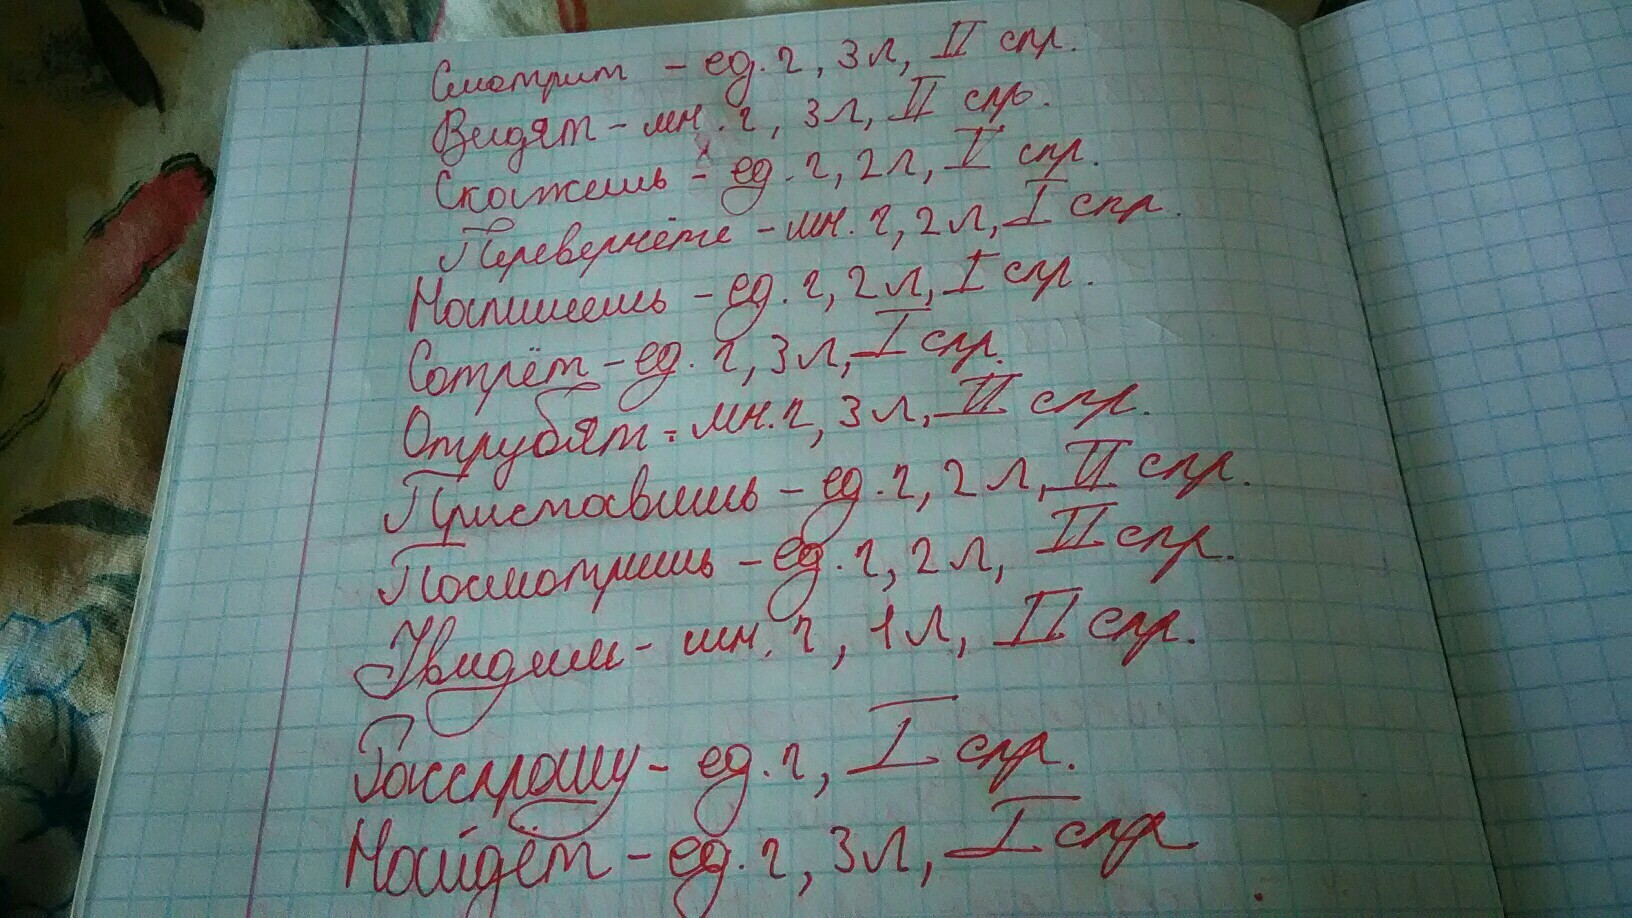 Смотрит - ед. ч, 3 л, II спр.
Видят - мн. ч, 3 л, II спр.
Скажешь - ед. ч, 2 л, I спр.
Перевернёте - мн. ч, 2 л, I спр.
Напишешь - ед. ч, 2 л, I спр.
Сотрёт - ед. ч, 3 л, I спр.
Отрубят - мн. ч, 3 л, II спр.
Приставишь - ед. ч, 2 л, II спр.
Посмотришь - ед. ч, 2 л, II спр.
Увидим - мн. ч, 1 л, II спр.
Расспрошу - ед. ч, I спр.
Найдёт - ед. ч, 3 л, I спр